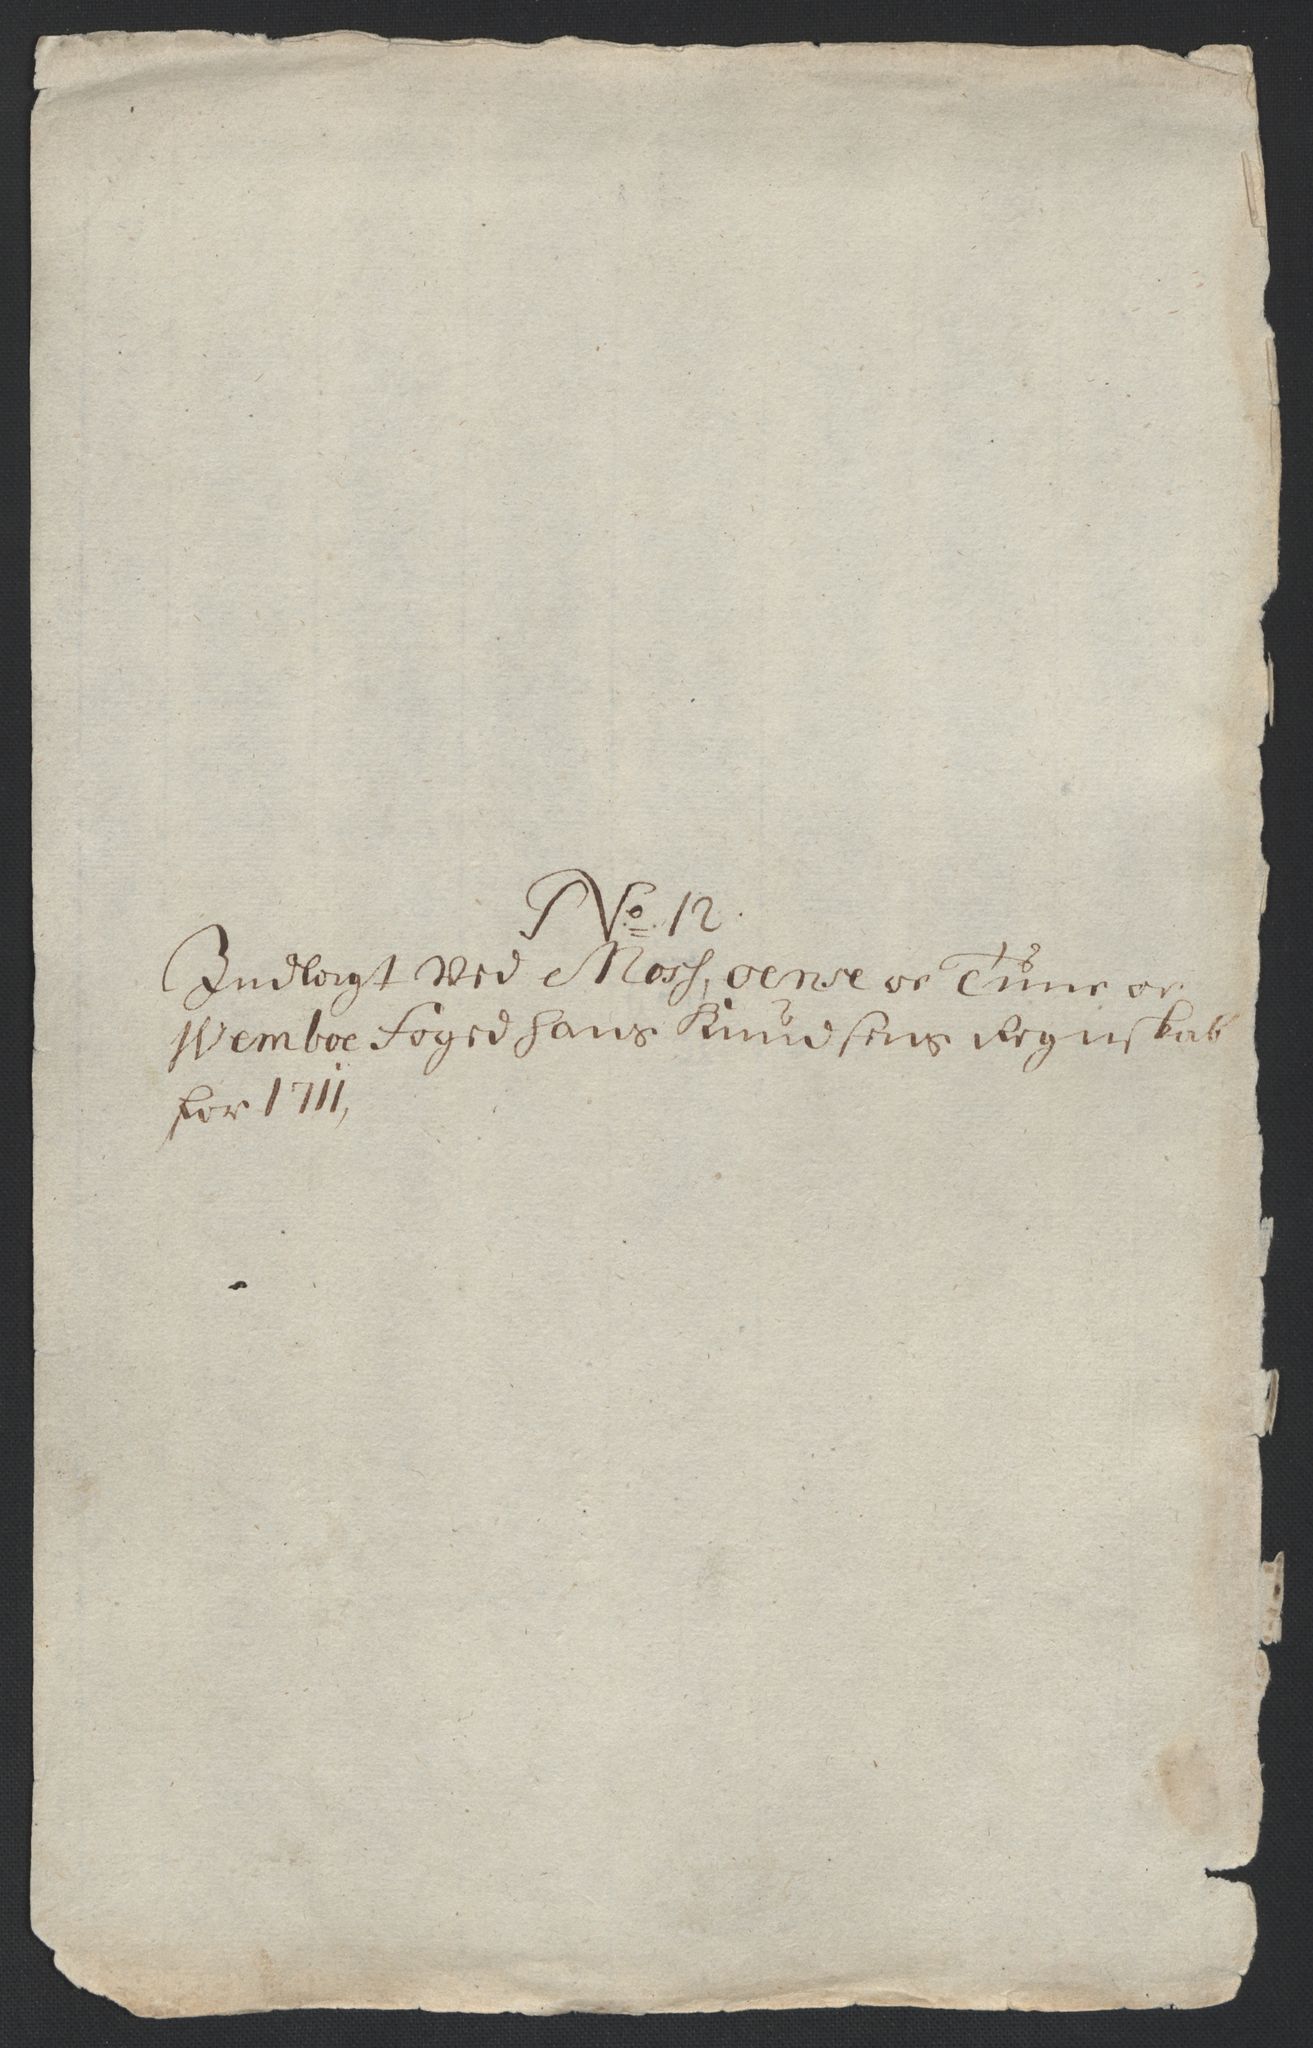 No. 12.
Indlagt Ved Moss, oense oc Tune oc
Wemboe Foged Hans Knudsens Regnskab
for 1711,